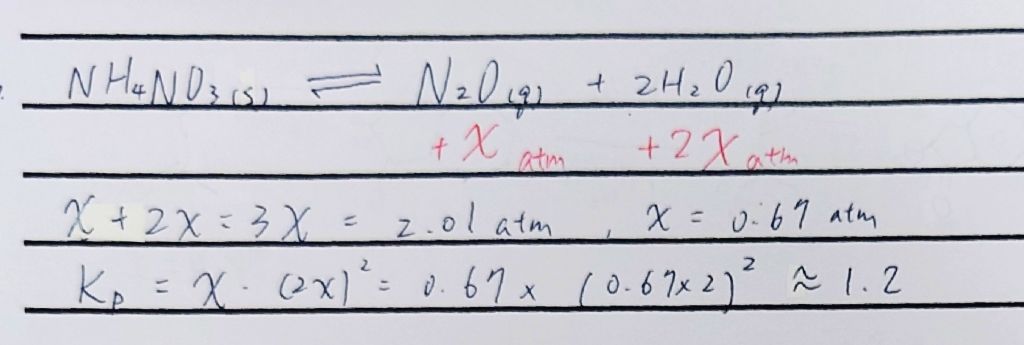 NH₄NO₃(s) ⇌ N₂O(g) + 2H₂O(g)
+X atm +2X atm
X + 2X = 3X = 2.01 atm , X = 0.67 atm
Kp = X · (2X)² = 0.67 × (0.67×2)² ≈ 1.2